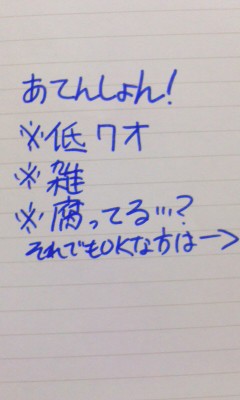 あてんしょん!
※低クオ
※雑
※腐ってる…?
それでもOKな方は→